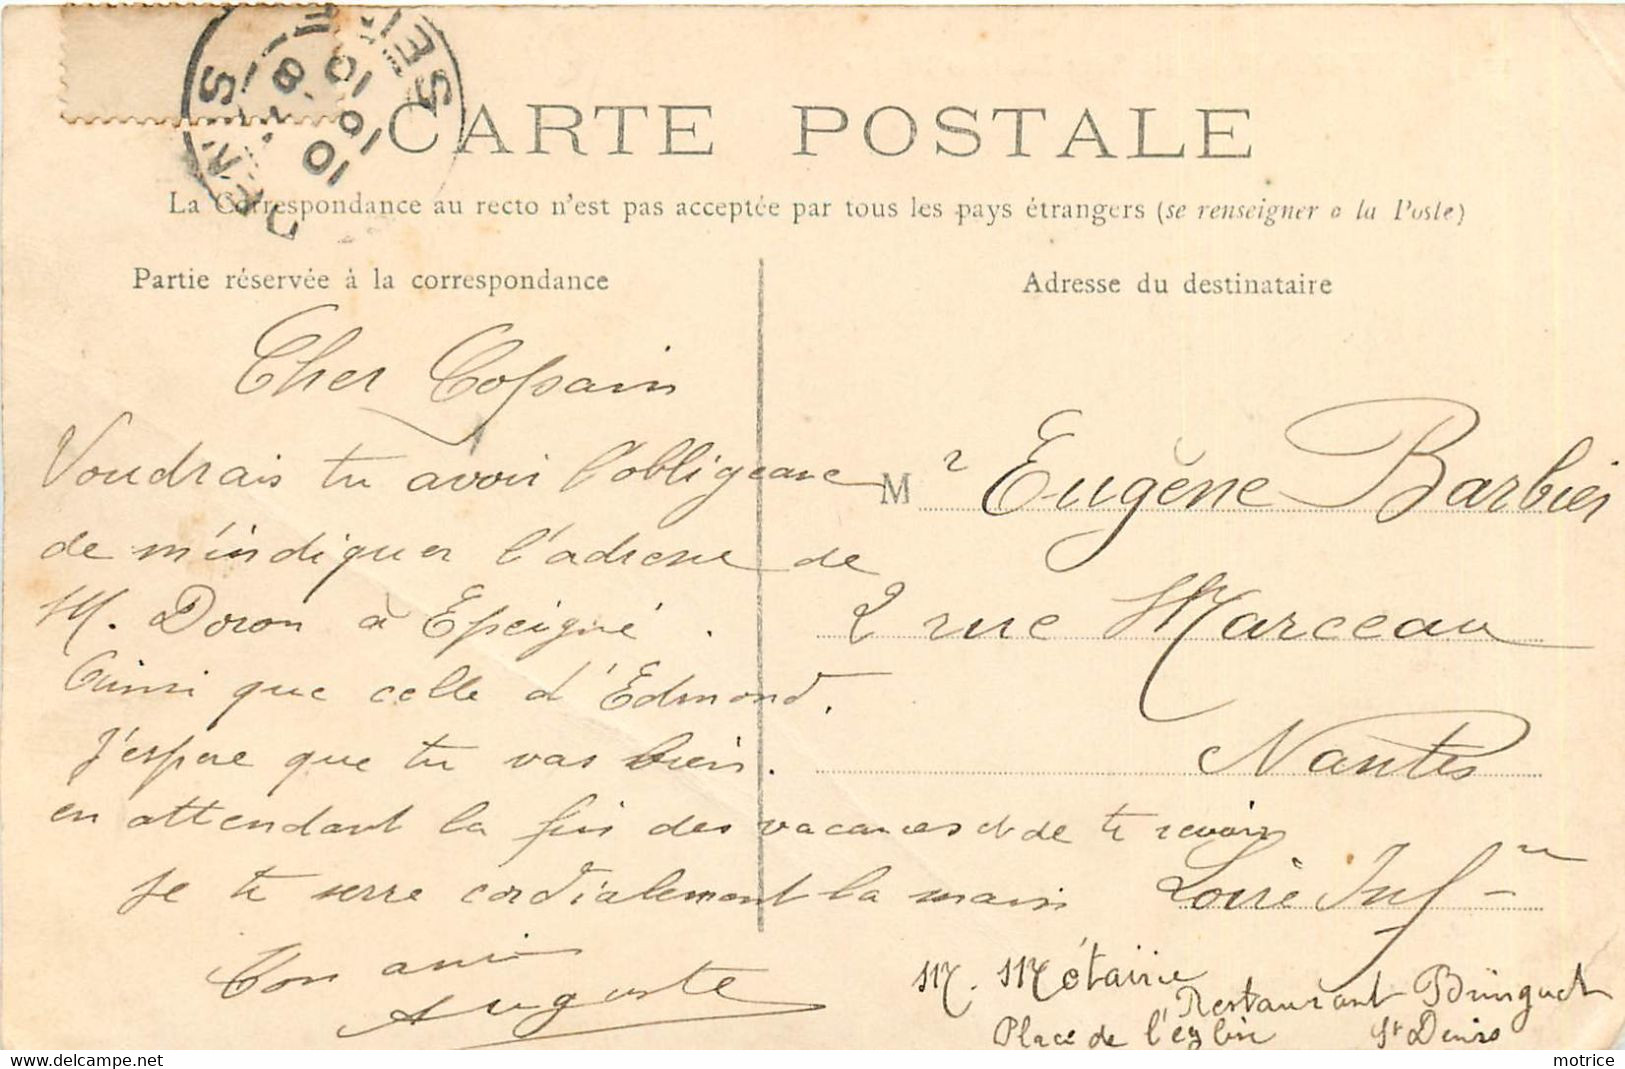 CARTE POSTALE
La Correspondance au recto n'est pas acceptée par tous les pays étrangers (se renseigner à la Poste)
Partie réservée à la correspondance
Cher Copain
Voudrais tu avoir l'obligeance
de m'indiquer l'adresse de
M. Doron à Epeigné.
Ainsi que celle d'Edmond.
J'espère que tu vas bien.
en attendant la fin des vacances et de te revoir
je te serre cordialement la main
Ton ami
Auguste
Adresse du destinataire
Mr Eugène Barbier
2 rue Marceau
Nantes
Loire Infre
M. Métairie
Restaurant
Place de l'église St Denis
DENIS
SEI
8
10
10
delcampe.net
motrice